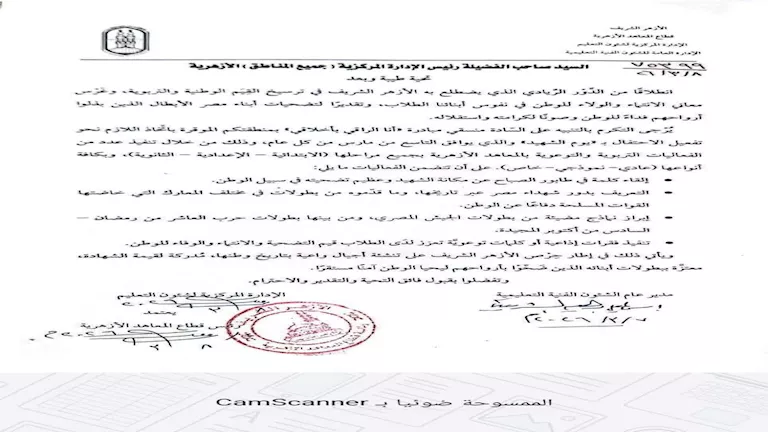 الأزهر الشريف
قطاع المعاهد الأزهرية
الإدارة المركزية لشئون التعليم
الإدارة العامة للشئون الفنية التعليمية
٧٥٣٩٩
٢٦/٣/٨
السيد صاحب الفضيلة رئيس الإدارة المركزية ( جميع المناطق ) الأزهرية
تحية طيبة وبعد
انطلاقًا من الدَّور الرِّيادي الذي يضطلع به الأزهر الشريف في ترسيخ القيَم الوطنية والتربوية، وغرْس
معاني الانتماء والولاء للوطن في نفوس أبنائنا الطلاب، وتقديرًا لتضحيات أبناء مصر الأبطال الذين بذلوا
أرواحهم فداءً للوطن وصونًا لكرامته واستقلاله.
يُرْجى التكرم بالتنبيه على السَّادة منسقي مبادرة «أنا الراقي بأخلاقي» بمنطقتكم الموقرة باتخاذ اللازم نحو
تفعيل الاحتفال بـ «يوم الشهيد» والذي يوافق التاسع من مارس من كل عام، وذلك من خلال تنفيذ عدد من
الفعاليات التربوية والتوعوية بالمعاهد الأزهرية بجميع مراحلها (الابتدائية – الإعدادية – الثانوية)، وبكافة
أنواعها (عادي– نموذجي– خاص). على أن تتضمن الفعاليات ما يلي:
• إلقاء كلمة في طابور الصباح عن مكانة الشهيد وعظيم تضحيته في سبيل الوطن.
• التعريف بدور شهداء مصر عبر تاريخها، وما قدَّموه من بطولاتٌ في مختلف المعارك التي خاضتها
القوات المسلحة دفاعًا عن الوطن.
• إبراز نماذج مضيئة من بطولات الجيش المصري، ومن بينها بطولات حرب العاشر من رمضان –
السادس من أكتوبر المجيدة.
• تنفيذ فقرات إذاعية أو كلمات توعويَّة تعزز لدَى الطلاب قيم التضحية والانتماء والوفاء للوطن.
ويأتي ذلك في إطار حِرْص الأزهر الشريف على تنشئة أجيال واعية بتاريخ وطنها، مُدركة لقيمة الشهادة،
معتزَّة ببطولات أبنائه الذين ضَحَّوْا بأرواحهم ليحيا الوطن آمنًا مستقرًا.
وتفضلوا بقبول فائق التحية والتقدير والاحترام.
مدير عام الشئون الفنية التعليمية
الإدارة المركزية لشئون التعليم
يعتمد
قطاع المعاهد الأزهرية
الممسوحة ضوئيا بـ CamScanner